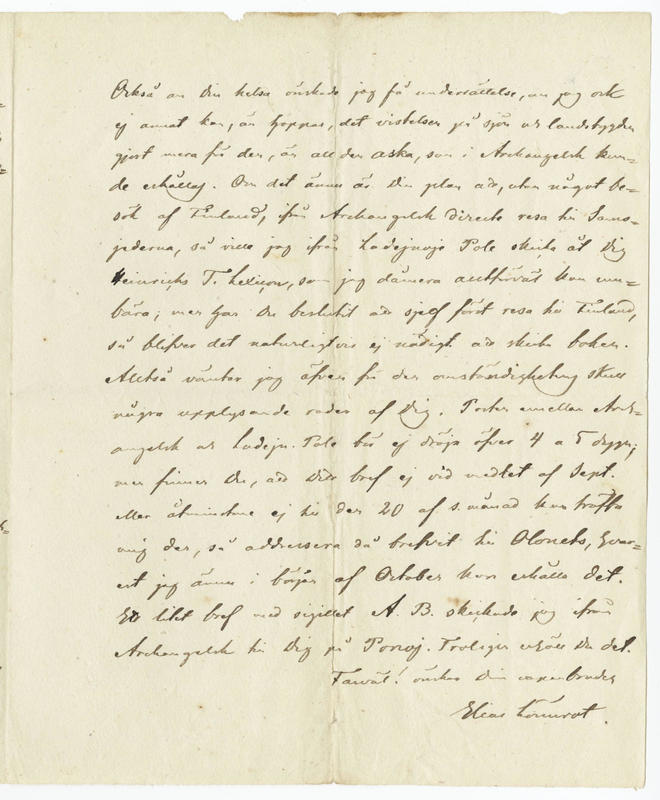 Också om Din helsa önskade jag få underrättelse, om jag ock
ej annat kan, än hoppas, det vistelsen på sjön och landsbygden
gjort mera för den, än all den aska, som i Archangelsk kun-
de erhållas. Om det ännu är Din plan att, utan något be-
sök af Finland, ifrån Archangelsk directe resa till Samo-
jederna, så ville jag ifrån Ladejnoje Pole skicka åt Dig
Heinrichs T. Lexicon, som jag dåmera altförväl kan um-
bära; men har Du beslutit att sjelf först resa till Finland,
så blifver det naturligtvis ej nödigt att skicka boken.
Alltså väntar jag äfven för den omständighetens skull
några upplysande rader af Dig. Posten emellan Arch-
angelsk och Ladejn. Pole bör ej dröja öfver 4 a 5 dygn;
men finner Du, att Ditt bref ej vid medlet af Sept.
eller åtminstone ej till den 20 af s. månad kan träffa
mig der, så addressera då brefvet till Olonets, hvar-
est jag ännu i början af October kan erhålla det.
Ett litet bref med sigillet A. B. skickade jag ifrån
Archangelsk till Dig på Ponoj. Troligen erhöll Du det.
Farväl! önskar Din vapenbroder
Elias Lönnrot.